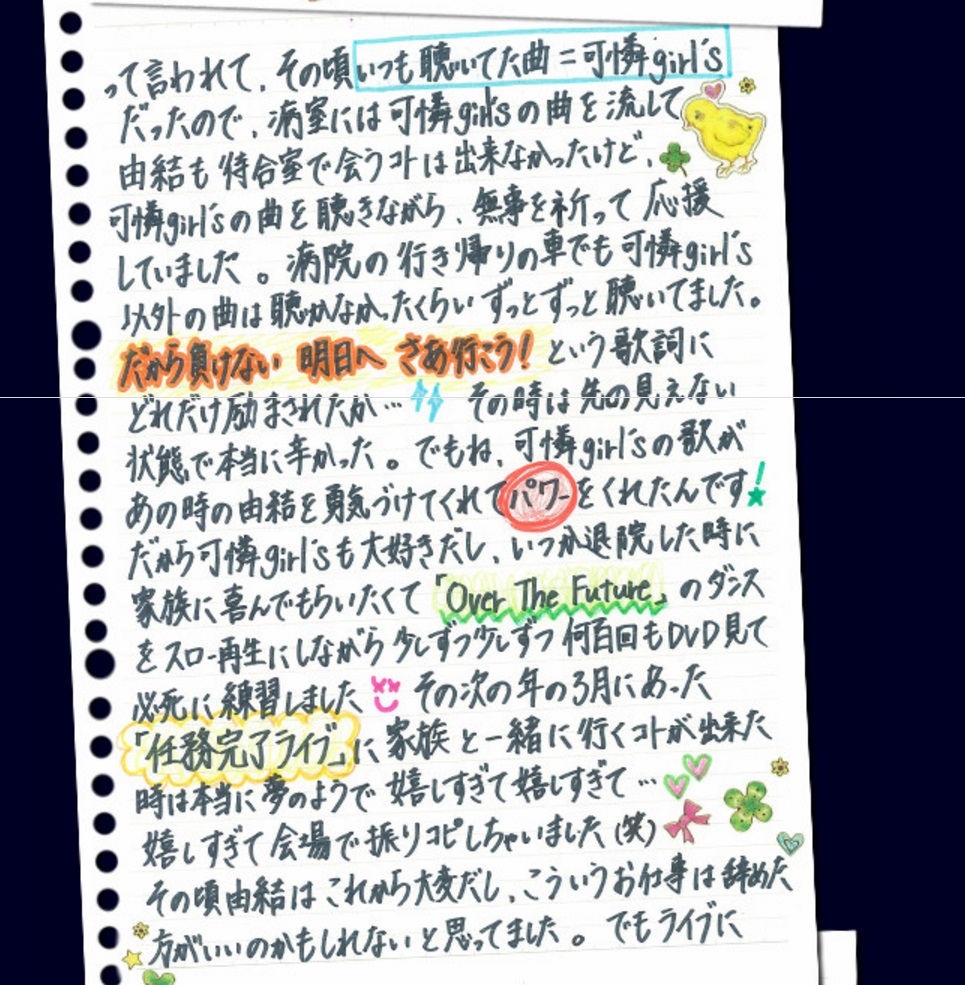 って言われて、その頃いつも聴いてた曲＝可憐girl's
だったので、病室には可憐girl'sの曲を流して
由結も待合室で会うコトは出来なかったけど、
可憐girl'sの曲を聴きながら、無事を祈って応援
していました。病院の行き帰りの車でも可憐girl's
以外の曲は聴かなかったくらいずっとずっと聴いてました。
だから負けない 明日へ さあ行こう！という歌詞に
どれだけ励まされたか… その時は先の見えない
状態で本当に辛かった。でもね、可憐girl'sの歌が
あの時の由結を勇気づけてくれてパワーをくれたんです！
だから可憐girl'sも大好きだし、いつか退院した時に
家族に喜んでもらいたくて「Over The Future」のダンス
をスロー再生にしながら少しずつ少しずつ何百回もDVD見て
必死に練習しました その次の年の3月にあった
「任務完了ライブ」に家族と一緒に行くコトが出来た
時は本当に夢のようで嬉しすぎて嬉しすぎて…
嬉しすぎて会場で振りコピしちゃいました(笑)
その頃由結はこれから大変だし、こういうお仕事は辞めた
方がいいのかもしれないと思ってました。でもライブに